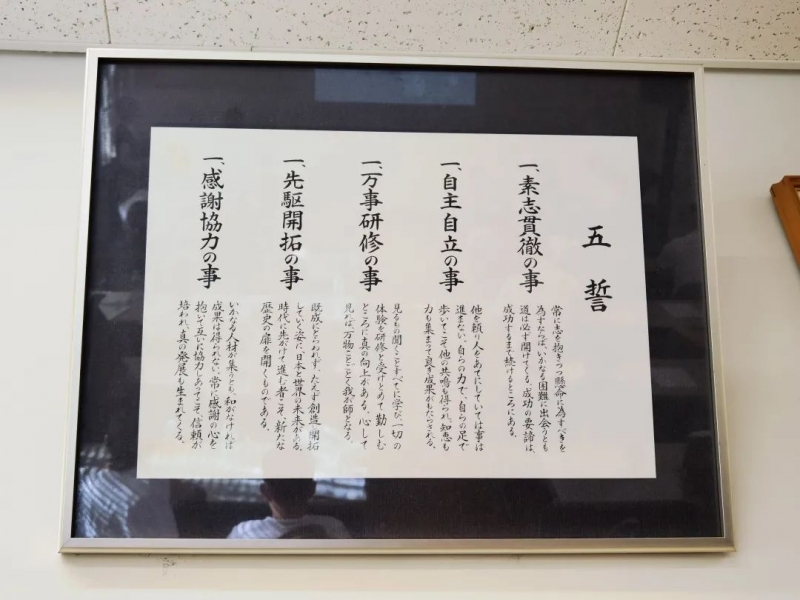 五誓
一、素志貫徹の事
常に志を抱きつつ懸命に為すべきを
為すならば、いかなる困難に出会うとも
道は必ず開けてくる。成功の要諦は、
成功するまで続けるところにある。
一、自主自立の事
他を頼り人をあてにしていては事は
進まない。自らの力で、自らの足で
歩いてこそ他の共鳴も得られ、知恵も
力も集まって良き成果がもたらされる。
一、万事研修の事
見るもの聞くことすべてに学び、一切の
体験を研修と受けとめて勤しむ
ところに真の向上がある。心して
見れば、万物ことごとく我が師となる。
一、先駆開拓の事
既成にとらわれず、たえず創造し開拓
していく姿に、日本と世界の未来がある。
時代に先がけて進む者こそ、新たな
歴史の扉を開くものである。
一、感謝協力の事
いかなる人材が集うとも、和がなければ
成果は得られない。常に感謝の心を
抱いて互いに協力しあってこそ、信頼が
培われ、真の発展も生まれてくる。